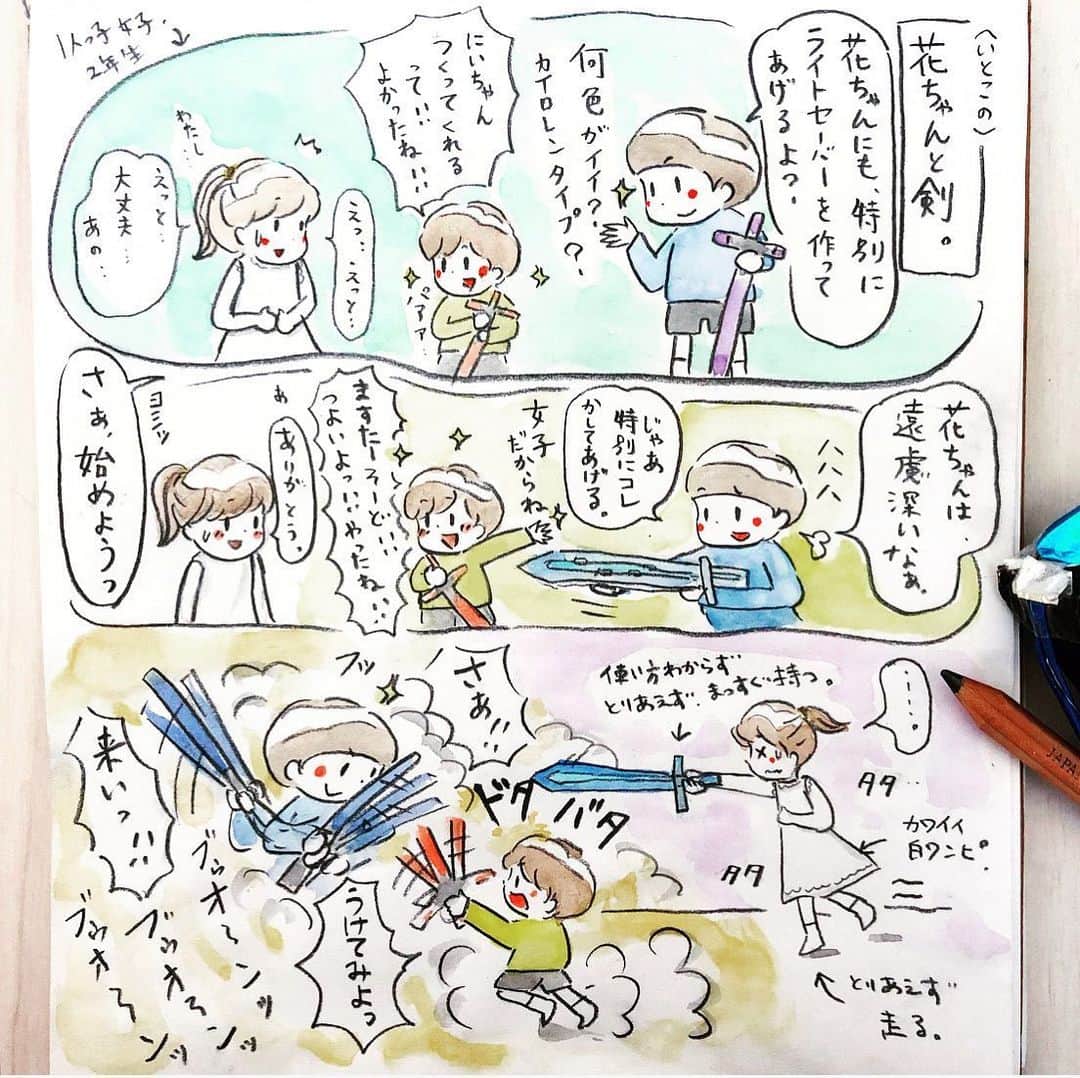 (いとこの)
花ちゃんと剣。
花ちゃんにも、特別に
ライトセーバーを作って
あげるよ？
何色がイイ？
カイロレンタイプ？
にいちゃん
つくってくれる
って!!!
よかったねい!!
ペアァ…
1人っ子女子。
2年生
えっ…えっと…
わたし…
えっと…
大丈夫…
あの…
花ちゃんは、
遠慮深いなぁ。
ハハハ
じゃあ
特別にコレ
かしてあげる。
女子
だからね
ますたーそーど!!!
つよいよっ!!やったねい!!
あ
ありがとう。
ヨシッ
さぁ、始めようっ
フッ
さぁ!!
来いっ!!!
ブゥオ〜ンッ
ブゥオ〜ンッ
ブゥオ〜ンッ
ドタバタ
うけてみよっ
使い方わからず
とりあえず、まっすぐ持つ。
……。
タタ…
タタ
カワイイ
白ワンピ。
とりあえず
走る。
JAPA